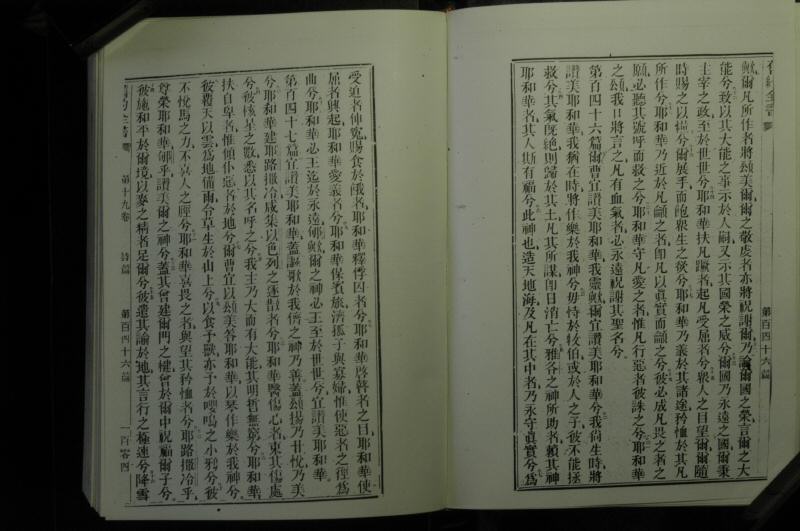 舊約全書
第百四十六篇
歟爾凡所作者將頌美爾爾之敬虔者亦將祝謝爾乃論爾國之榮言爾之大
能兮致以其大能之事示於人嗣又示其國榮之威兮爾國乃永遠之國爾秉
主宰之政至於世世兮耶和華扶凡蹶者起凡受屈者兮衆人之目望爾爾隨
時賜之以糧兮爾展手而飽衆生之欲兮耶和華乃義於其諸途矜恤於其凡
所作兮耶和華乃近於凡龥之者卽凡以眞實而龥之兮彼必成凡畏之者之
願必聽其號呼而救之兮耶和華守凡愛之者惟凡行惡者彼誅之兮耶和華
之頌我口將言之凡有血氣者必永遠祝謝其聖名兮
第百四十六篇爾曹宜讚美耶和華我靈歟爾宜讚美耶和華兮我尙生時將
讚美耶和華我猶在時將作樂於我神兮毋恃於牧伯或於人之子彼不能拯
救兮其氣旣絕則歸於其土凡其所謀卽日消亡兮雅各之神所助者賴其神
耶和華者其人斯有福兮此神也造天地海及凡在其中者乃永守眞實兮爲
受迫者伸冤賜食於餓者耶和華釋俘囚者兮耶和華啓瞽者之目耶和華使
屈者興起耶和華愛義者兮耶和華保賓旅濟孤子與寡婦惟使惡者之徑爲
曲兮耶和華必王迄於永遠郇歟爾之神必王至於世世兮宜讚美耶和華
第百四十七篇宜讚美耶和華蓋謳歌於我儕之神乃善蓋頌揚乃甘悅乃美
兮耶和華建耶路撒冷咸集以色列之逐散者兮耶和華醫傷心者裹其傷處
兮彼核星之數悉以其名呼之兮我主乃大而有大能其明哲無窮兮耶和華
扶自卑者惟傾仆惡者於地兮爾曹宜以頌美答耶和華以琴作樂於我神兮
彼覆天以雲爲地備雨兮草生於山上兮以食予獸亦予於嚶鳴之小鴉兮彼
不悅馬之力不喜人之脛兮耶和華喜畏之者與望其矜恤者兮耶路撒冷乎
尊榮耶和華郇乎讚美爾之神兮蓋其曾建爾門之楗曾於爾中祝福爾子兮
彼施和平於爾境以麥之精者足爾兮彼遣其諭於地其言行之極速兮降雪
第十九卷
詩篇
第百四十六篇
一百零四